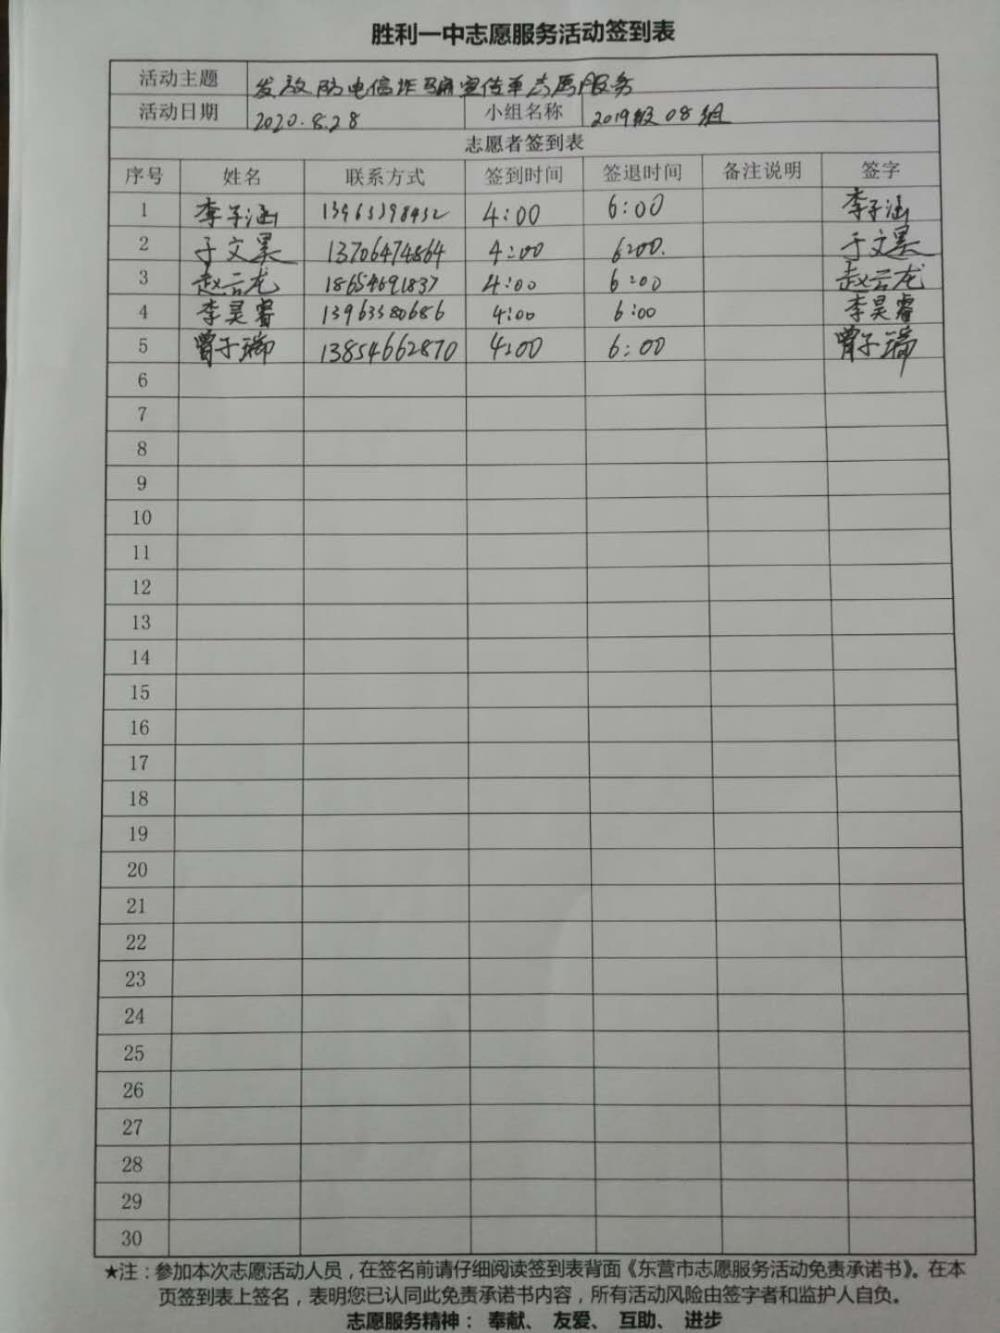 胜利一中志愿服务活动签到表
活动主题 发放防电信诈骗宣传单志愿服务
活动日期 2020.8.28 小组名称 2019级08组
志愿者签到表
序号 姓名 联系方式 签到时间 签退时间 备注说明 签字
1 李子涵 4:00 6:00 李子涵
2 于文昊 13706474864 4:00 6:00. 于文昊
3 赵云龙 18654691837 4:00 6:00 赵云龙
4 李昊睿 13963380686 4:00 6:00 李昊睿
5 曾子瑞 13854662870 4:00 6:00 曾子瑞
6
7
8
9
10
11
12
13
14
15
16
17
18
19
20
21
22
23
24
25
26
27
28
29
30
★注：参加本次志愿活动人员，在签名前请仔细阅读签到表背面《东营市志愿服务活动免责承诺书》。在本
页签到表上签名，表明您已认同此免责承诺书内容，所有活动风险由签字者和监护人自负。
志愿服务精神： 奉献、 友爱、 互助、 进步